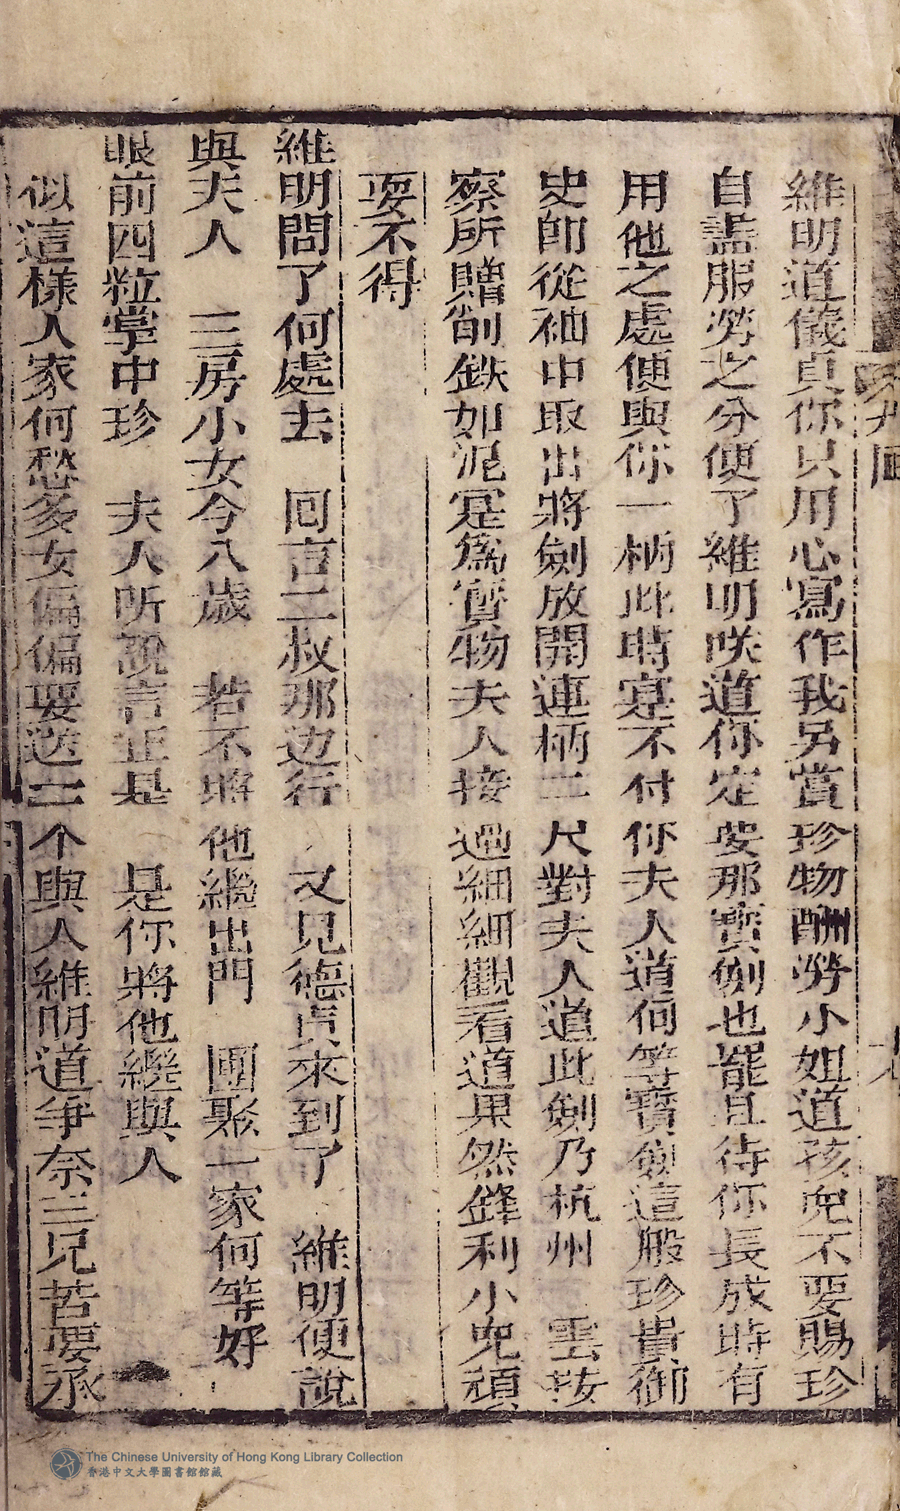 維明道儀貞你只用心寫作我另賞珍物酬勞小姐道孩兒不要賜珍
自盡服勞之分便了維明咲道你定要那寳劍也罷且待你長成時有
用他之處便與你一柄此時寔不付你夫人道何等寳劍這般珍貴御
史即從袖中取出將劍放開連柄二尺對夫人道此劍乃杭州 雲按
察所贈削鉄如泥寔為寳物夫人接過細細觀看道果然鋒利小兒頑
耍不得
維明問了何處去 囘言二叔那边行 又見德貞來到了 維明便說
與夫人 三房小女今八歲 若不將他繼出門 團聚一家何等好
眼前四粒掌中珍 夫人听說言正是 是你將他繼與人
似這樣人家何愁多女偏偏要送一个與人維明道爭奈三兄苦要承
九囬
The Chinese University of Hong Kong Library Collection
香港中文大學圖書館館藏